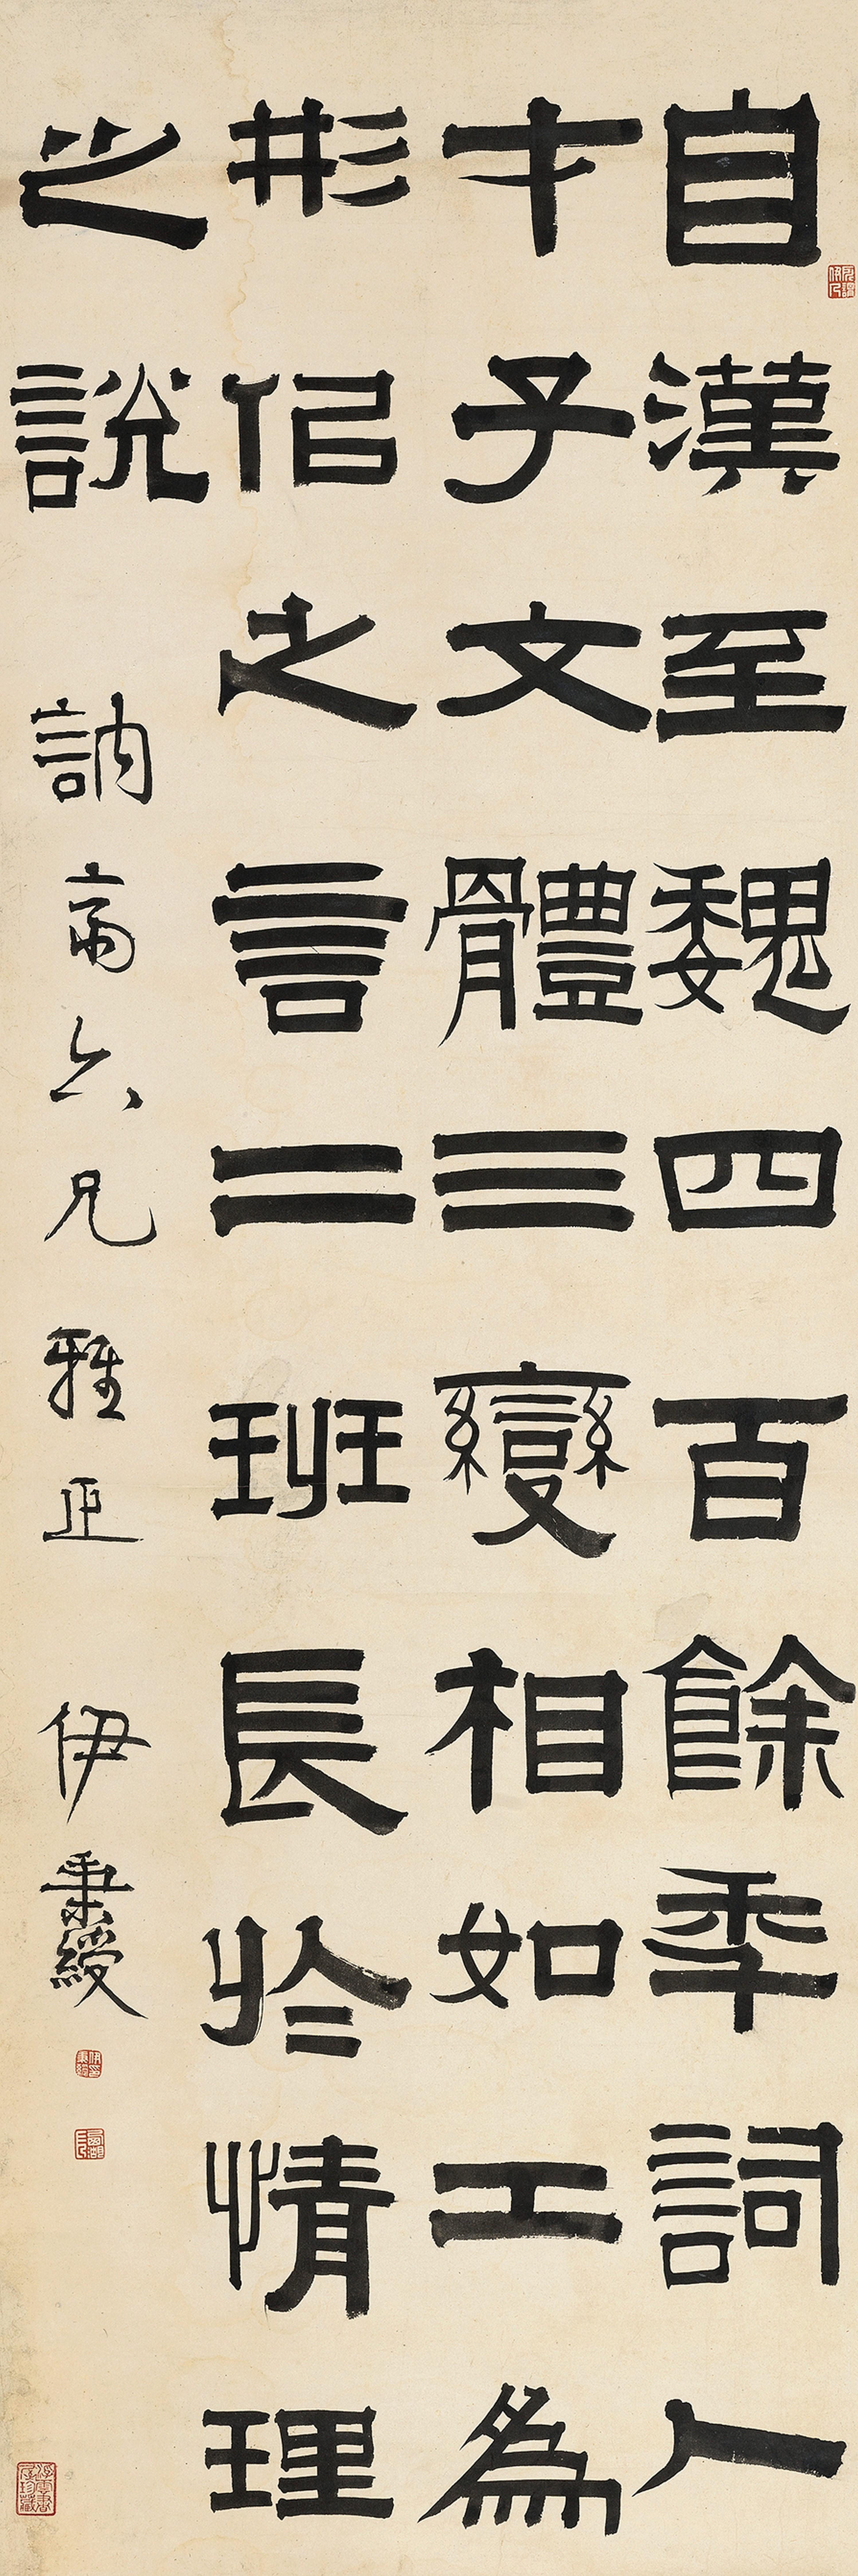 自漢至魏四百餘年詞人
才子文體三變相如工為
形佀之言二班長於情理
之說　訥斋六兄雅正　伊秉綬